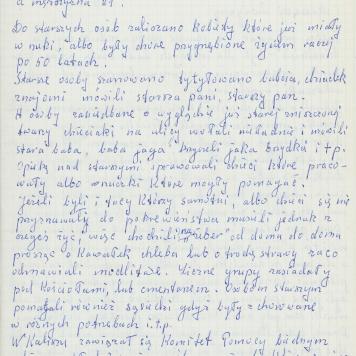 a mężczyzna 21.
Do starszych osób zaliczano kobiety które już miały
wnuki, albo były chore przygnębione życiem raczej
po 50 latach.
Starsze osoby szanowano tytułowano babcia, dziadek
znajomi mówili starsza pani, starszy pan.
A osoby zaniedbane o wyglądzie już starej zniszczonej
twarzy dzieciaki na ulicy wołali nieładnie i mówili
stara baba, baba jaga brzydka jaka brzydka i t p.
Opiekę nad starszymi sprawowali dzieci które praco-
wały albo wnuczki które mogły pomagać.
Jeżeli byli i tacy którzy samotni, albo dzieci się nie
przyznawały do pokrewieństwa musieli jednak z
czegoś żyć, więc chodzili na "żuber" od domu do domu
prosząc o kawałek chleba lub o trochę strawy za co
odmawiali modlitwę. Liczne grupy zasiadały
pod kościołami, lub cmentarzem. Osobom starszym
pomagali również sąsiedzi gdyż były zchorowane
w różnych potrzebach i.t.p.
W Kaliszu zawiązał się Komitet Pomocy biednym